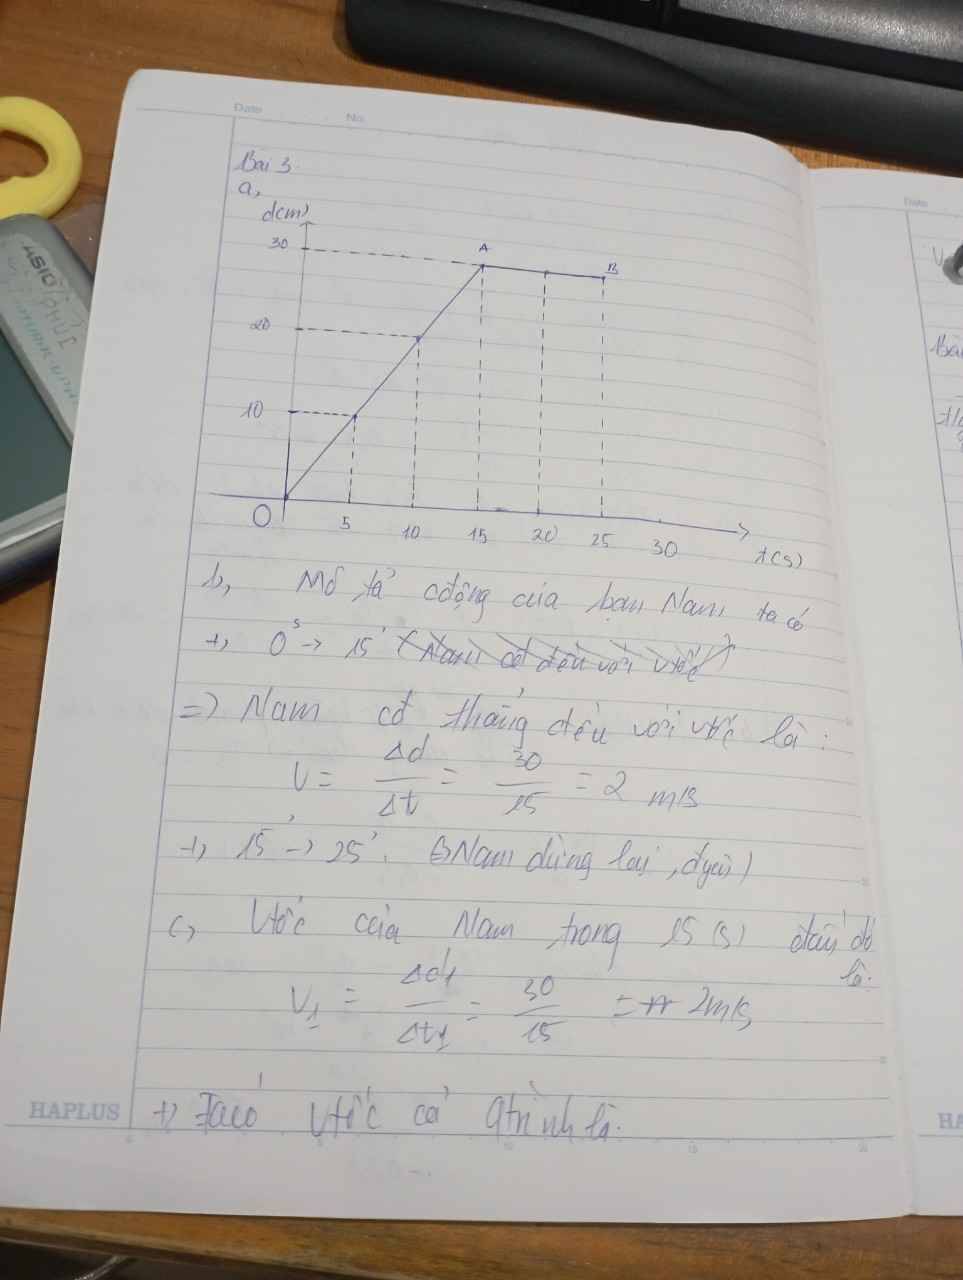 Date
No.
Date
Bài 3
a,
d(m)
30
A
B
20
10
O
5
10
15
20
25
30
t(s)
b, Mô tả cđộng của bạn Nam ta có
+, 0s -> 15' (Nam cđ đều với vtốc)
=> Nam cđ thẳng đều với vtốc là:
v = Δd/Δt = 30/15 = 2 m/s
+, 15' -> 25'. Nam dừng lại, đyên)
c, Vtốc của Nam trong 15 (s) đầu đó
là:
v1 = Δd1/Δt1 = 30/15 = 2m/s
+) Ta có vtốc cả qtrình là:
HAPLUS
ASIO
V
Bài
HA